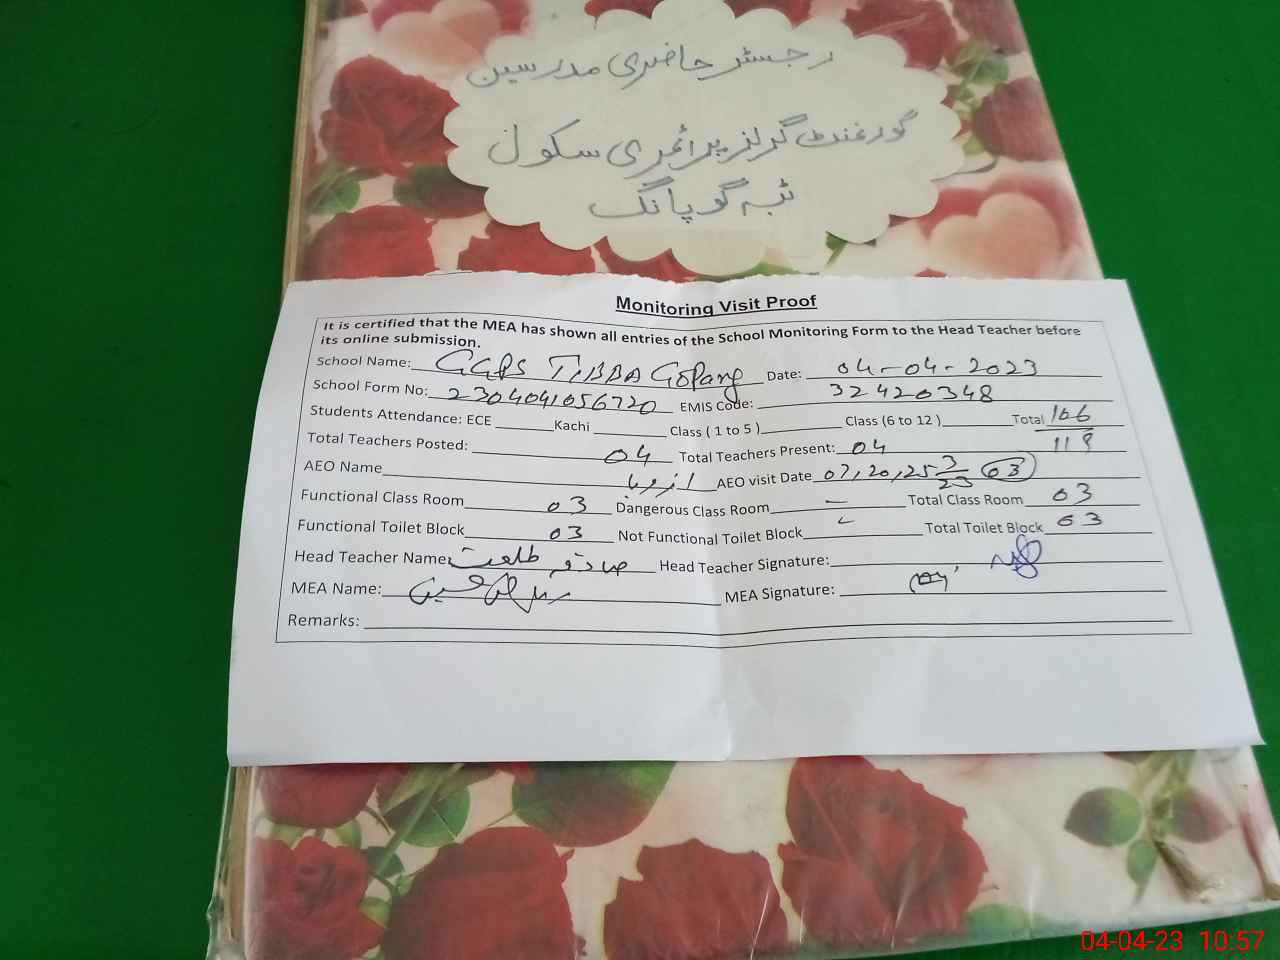 رجسٹر حاضری مدرسین
گورنمنٹ گرلز پرائمری سکول
ٹبہ گوپانگ
Monitoring Visit Proof
It is certified that the MEA has shown all entries of the School Monitoring Form to the Head Teacher before
its online submission.
School Name: GGPS TIBBA GOPang Date: 04-04-2023
School Form No: 2304041056720 EMIS Code: 32420348
Students Attendance: ECE Kachi Class ( 1 to 5 ) Class (6 to 12 ) Total 106
119
Total Teachers Posted: 04 Total Teachers Present: 04
AEO Name AEO visit Date 07,20,25 3/23 03
Functional Class Room 03 Dangerous Class Room — Total Class Room 03
Functional Toilet Block 03 Not Functional Toilet Block Total Toilet Block 03
Head Teacher Name صادقہ طلعت Head Teacher Signature:
MEA Name: MEA Signature:
Remarks:
04-04-23 10:57